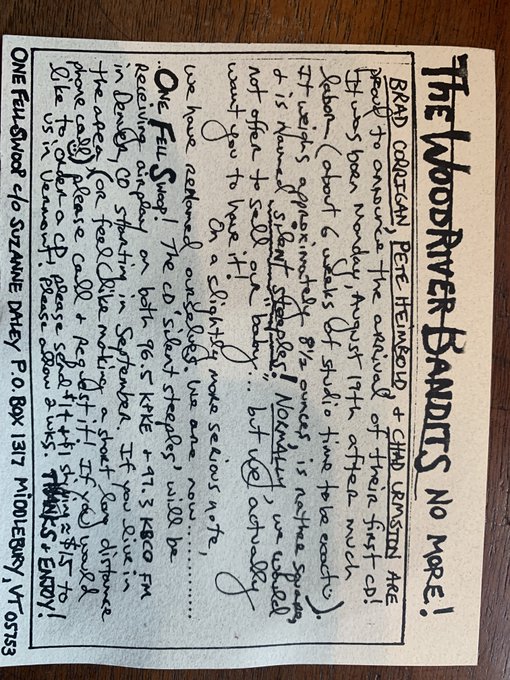 THE WOODRIVER BANDITS NO MORE!
BRAD CORRIGAN, PETE HEIMBOLD + CHAD URMSTON ARE
proud to announce the arrival of their first CD!
It was born Monday, August 19th after much
labor (about 6 weeks of studio time to be exact☺).
It weighs approximately 8½ ounces, is rather square,
+ is named "silent steeples"! NORMALLY, we would
not offer to sell our "baby"... but we actually
want you to have it!
On a slightly more serious note,
we have renamed ourselves. We are now..........
..ONE FELL SWOOP! The CD 'silent steeples' will be
receiving airplay on both 96.5 KXKE + 97.3 KBCO FM
in Denver, CO starting in September. If you live in
the area (or feel like making a short long distance
phone call☺) please call + request it! If you would
like to order a CD, please send $14 + $1 shippin ≈ $15 to
us in Vermont! Please allow 2 wks. THANKS + ENJOY!
ONE FELL SWOOP c/o SUZANNE DALEY P.O. BOX 1317 MIDDLEBURY, VT 05753